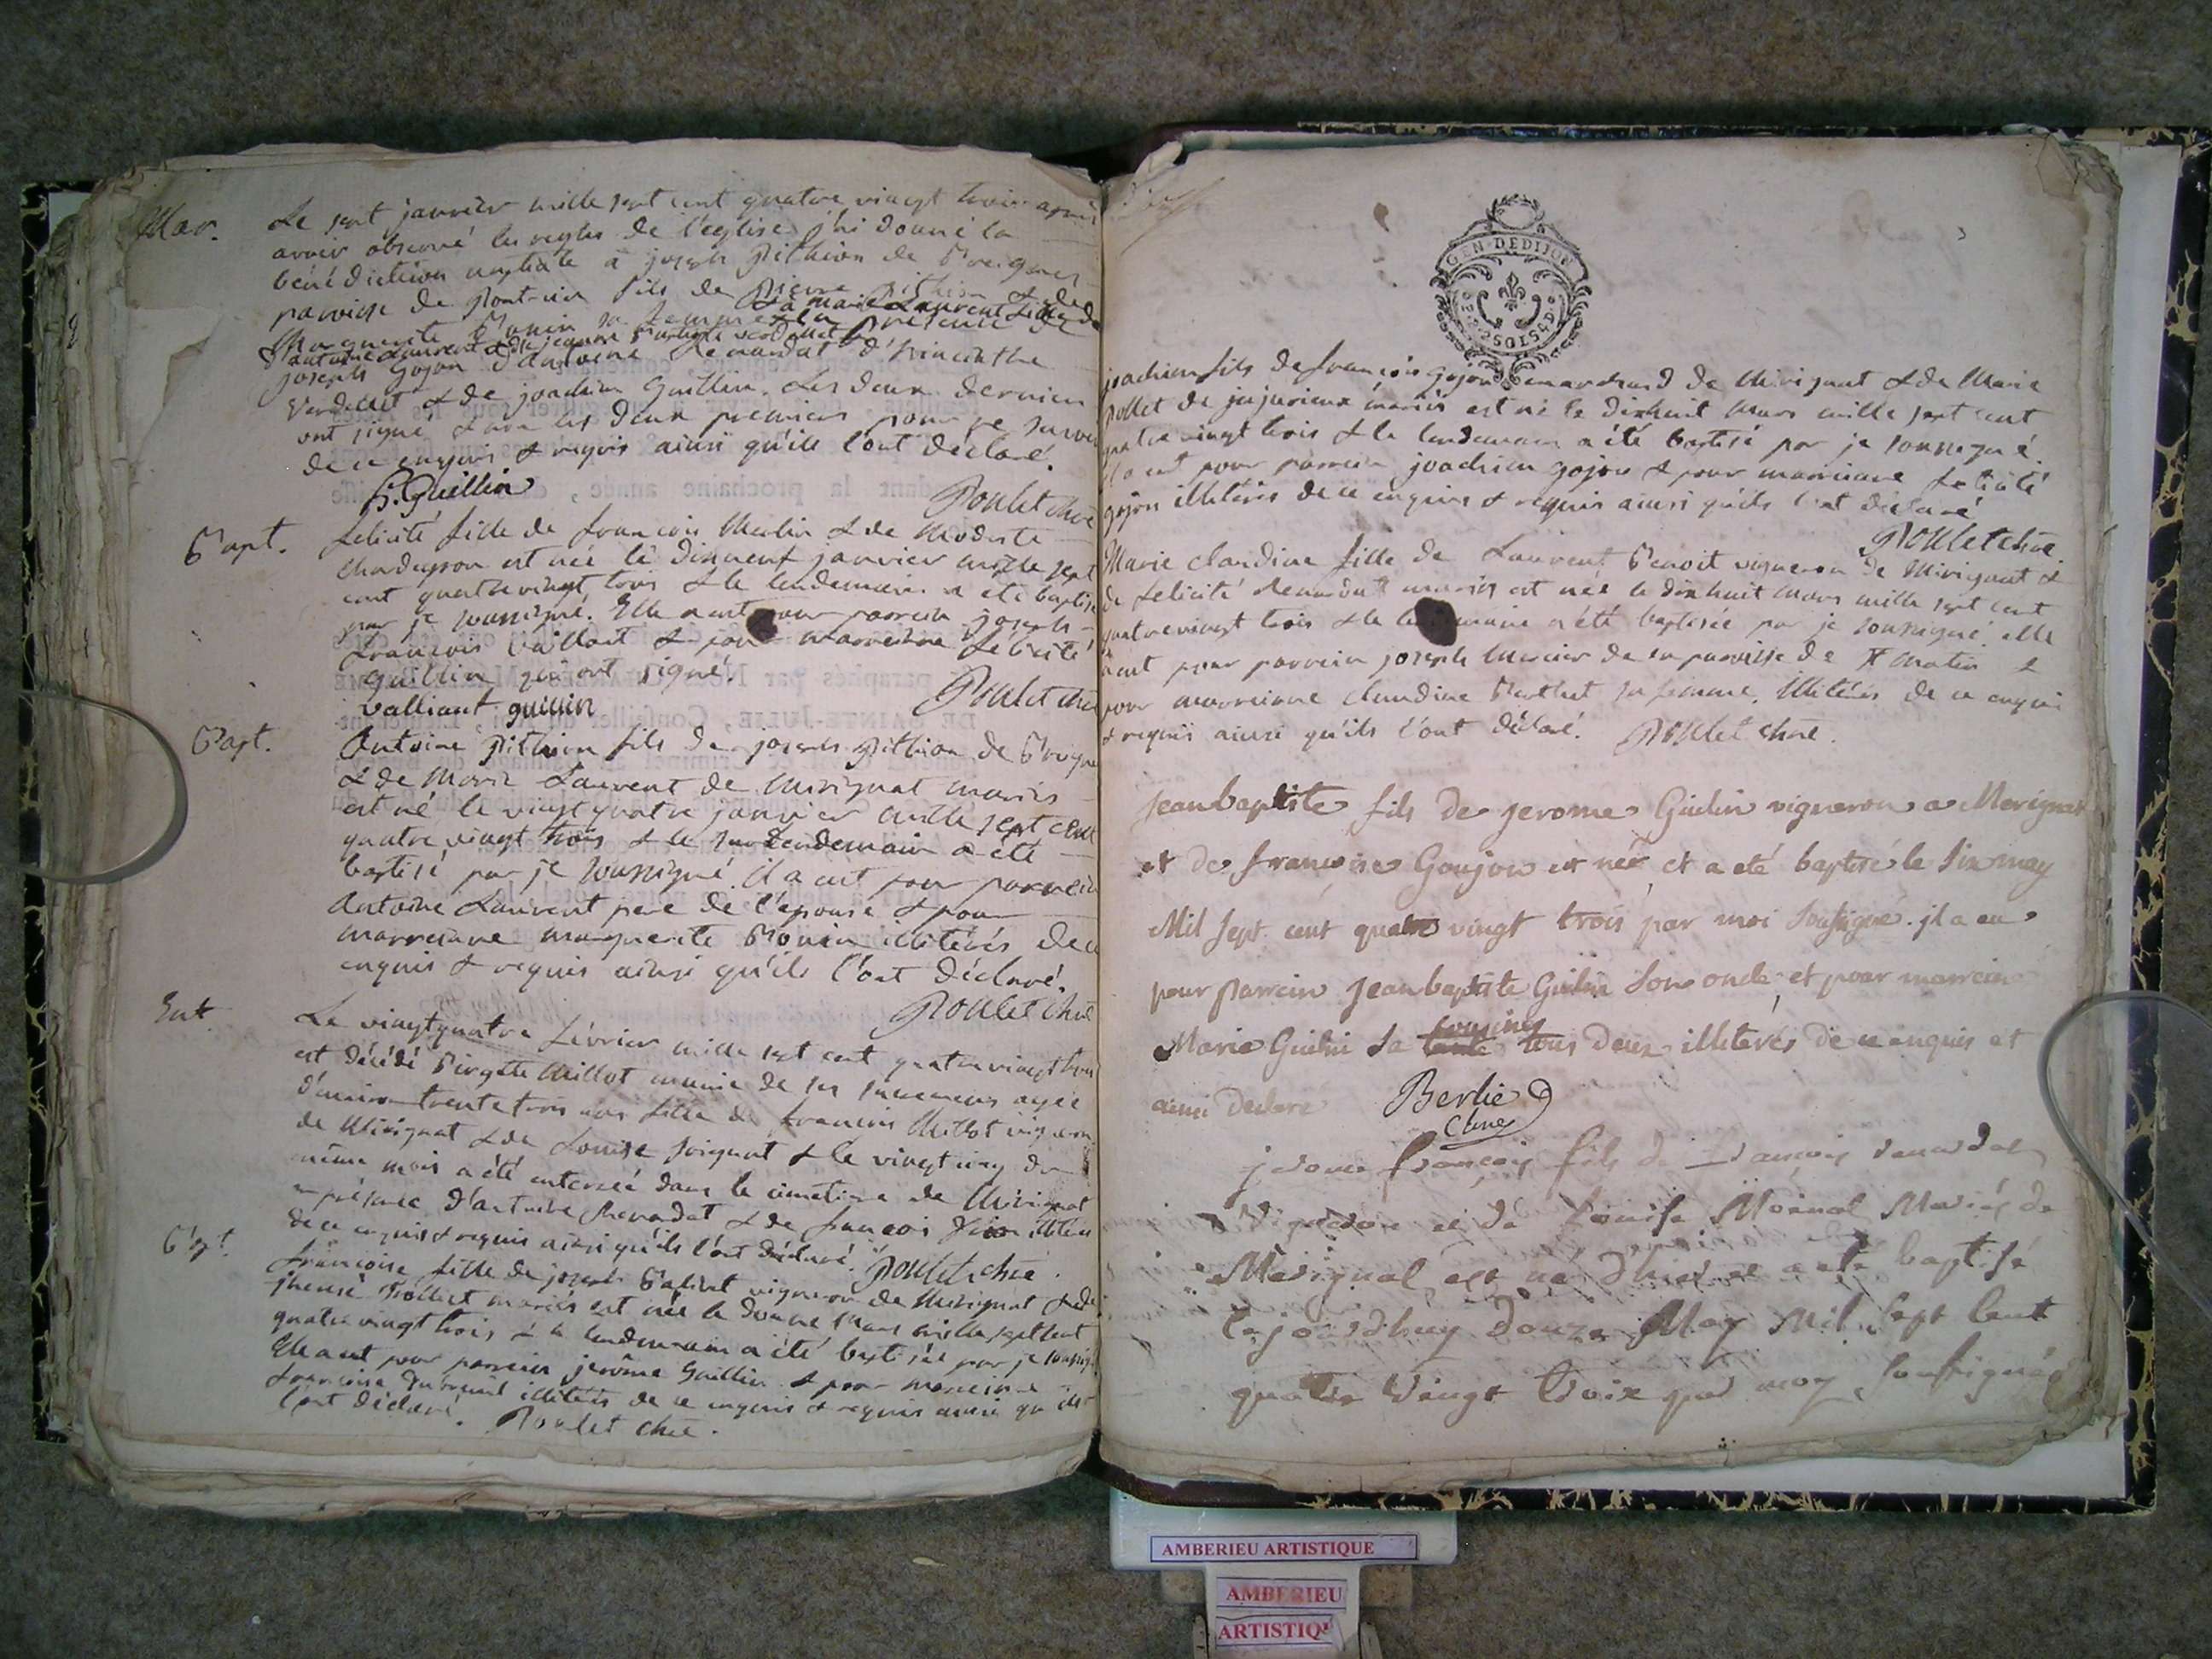 Mar.
Le sept janvier mille sept cent quatre vingt trois après
avoir observé les regles de l'église j'hi donné la
bénédiction nuptiale à joseph Pithion de
paroisse de fils de Pierre Pithion & de
Marguerite sa femme & à marie Laurent fille de
d'antoine Laurent & de jeanne en présence de
joseph Gojon d'antoine Renardat d'hiacinthe
Verdellet & de joachim Guillin. Les deux derniers
ont signé & non les deux premiers pour ne savoir
de ce enquis & requis ainsi qu'ils l'ont déclaré.
Guillin
Poulet chre
Bapt.
Félicité fille de françois Merlin & de Modeste
est née le dixneuf janvier mille sept
cent quatre vingt trois & le lendemain a été baptisé
par je soussigné. Elle a eut pour parrein joseph
françois Vaillant & pour marreinne félicité
guillin qui ont signé.
Valliant guillin
Poulet chre
Bapt.
Antoine Pithion fils de joseph Pithion de
& de Marie Laurent de Mirignat mariés
est né le vingt quatre janvier mille sept cent
quatre vingt trois & le surlendemain a été
baptisé par je soussigné. il a eut pour parrein
Antoine Laurent pere de l'epouse & pour
marreinne marguerite illitérés de ce
enquis & requis ainsi qu'ils l'ont déclaré.
Poulet chre
Ent.
Le vingtquatre février mille sept cent quatrevingt trois
est décédé Millot munie de ses sacremens agée
d'environ trente trois ans fille de françois Millot vigneron
de Mirignat & de Louise & le vingt cinq du
même mois a été enterrée dans le cimetière de Mirignat
en présence d'antoine Renardat & de françois illitérés
de ce enquis & requis ainsi qu'ils l'ont déclaré. Poulet chre.
Bapt.
françoise fille de joseph vigneron de Mirignat & de
mariés est née le douze Mars mille sept cent
quatre vingt trois & le lendemain a été baptisée par je soussigné.
Elle a eut pour parrein jerôme Guillin & pour marreinne
françoise Dubreuil illitérés de ce enquis & requis ainsi qu'ils
l'ont déclaré. Poulet chre.
GEN DE DIJON
joachim fils de françois gojon marchand de Mirignat & de Marie
pollet de jujurieux mariés est né le dixhuit Mars mille sept cent
quatre vingt trois & le lendemain a été baptisé par je soussigné.
il a eut pour parrein joachim gojon & pour marreinne félicité
gojon illitérés de ce enquis & requis ainsi qu'ils l'ont déclaré
Poulet chre.
Marie claudine fille de Laurent Benoit vigneron de Mirignat &
de félicité Renardat mariés est née le dixhuit Mars mille sept cent
quatre vingt trois & le a été baptisée par je soussigné elle
a eut pour parrein joseph Mercier de la paroisse de St Matin &
pour marreinne claudine sa femme. illitérés de ce enquis
& requis ainsi qu'ils l'ont déclaré. Poulet chre.
jean baptiste fils de jerome Guilin vigneron a Merignat
et de françoise Goujon est né et a eté baptisé le six may
Mil sept cent quatre vingt trois par moi soussigné. il a eu
pour Parrein Jean baptiste Guilin son oncle et pour marreine
Marie Guilin sa cousine tous deux illiterés de ce enquis et
ainsi declare
Berlie
Chre
jerome françois fils de françois renardat
Vigneron et de Louise Moinat Mariés de
Merignat est né d'hier et a été baptisé
Cejourdhuy douze May Mil sept Cent
quatre Vingt troix par moy soussigné
AMBERIEU ARTISTIQUE
AMBERIEU
ARTISTIQ